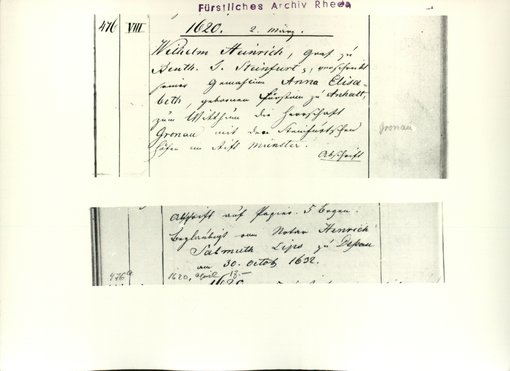 Fürstliches Archiv Rheda
476 VIII 1620. 2. März.
Wilhelm Heinrich, Graf zu
Benth. S. Steinfurt p, verschreibt
seiner Gemahlin Anna Elisa-
beth, geborenen Fürstin zu Anhalt,
zum Witthum die Herrschaft
Gronau mit den Steinfurtschen
Höfen im Stift Münster.
Gronau
Abschrift
Abschrift auf Papier. 5 Bogen.
Beglaubigt vom Notar Heinrich
Salmuth Lips zu Dessau
am 30. Octob 1632.
476a 1620, April 13.-
1620